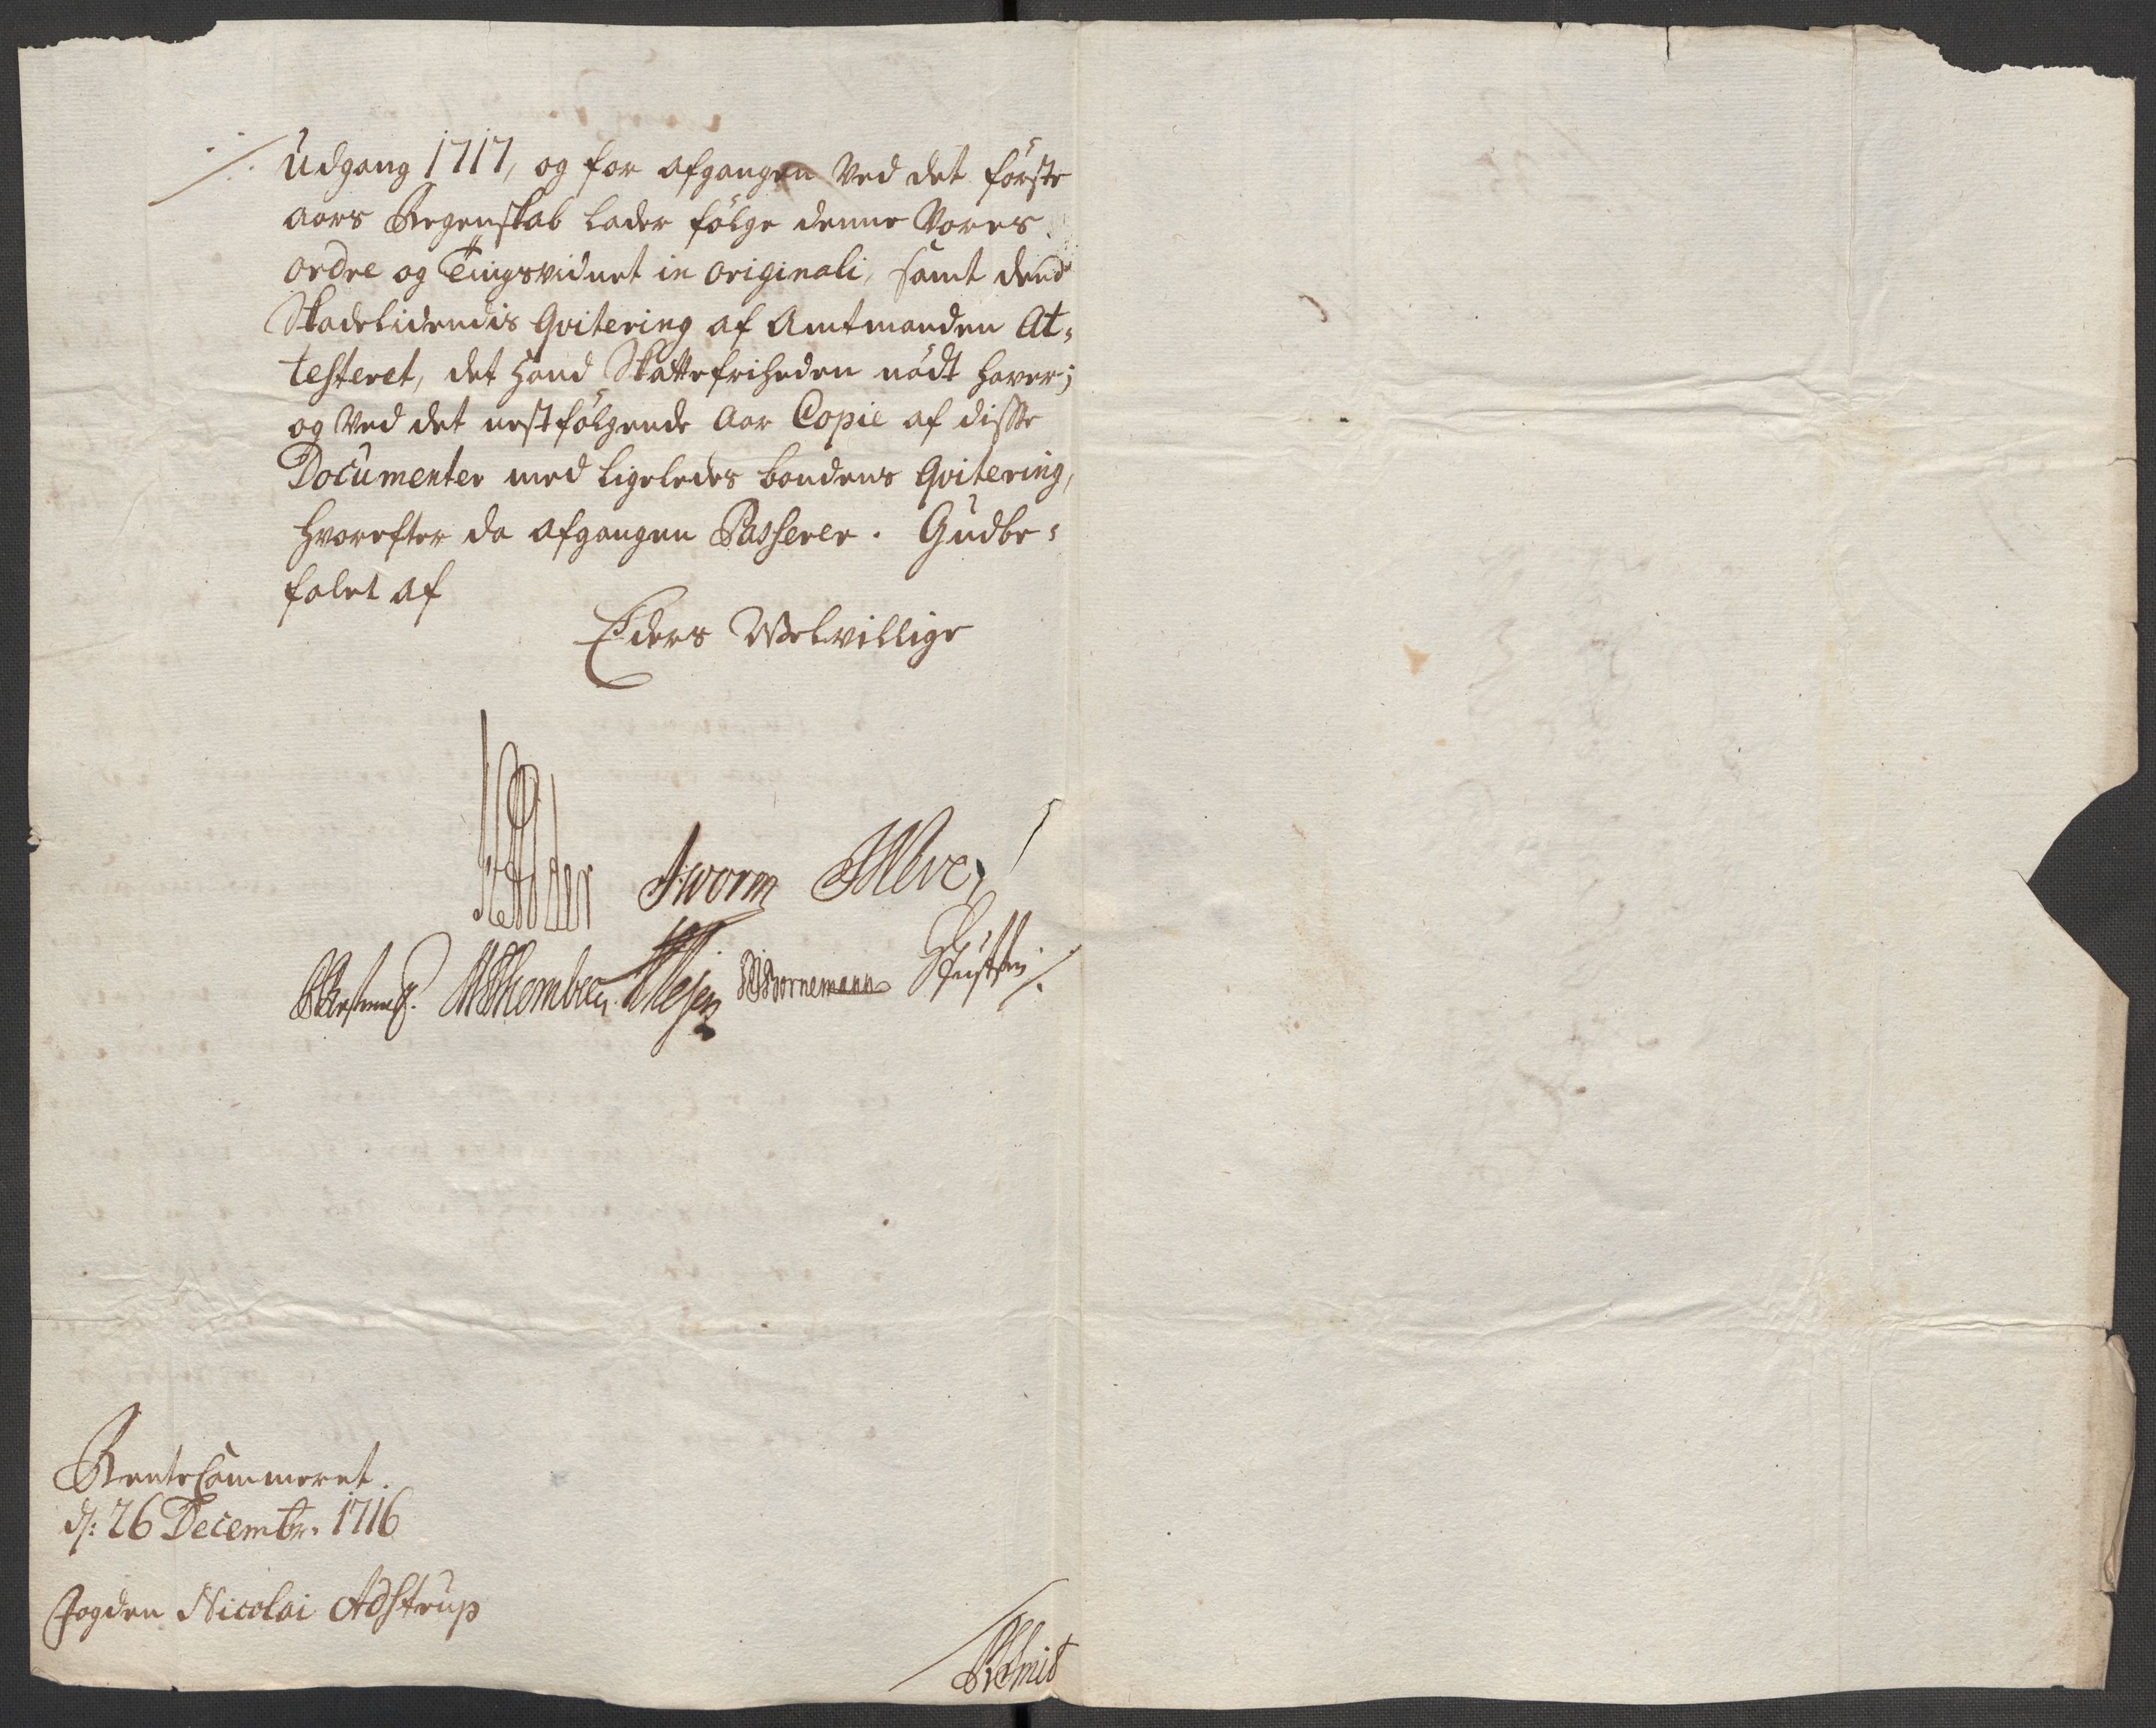 ./. Udgang 1717, og for afgangen Ved det förste
aars Regenskab lader fölge denne Vores
ordre og Tingsvidnet in originali, samt dend
Skadelidendis Qvitering af Amtmanden At=
testeret, det hand Skattefriheden nödt haver;
og Ved det nestfölgende Aar Copie af disse
Documenter med ligeledes bondens Qvitering,
hvorefter da afgangen Passerer. Gudbe=
falet af
Eders Welvillige
JWorm
Bornemann
RenteCammeret.
d: 26 Decembr. 1716
Fogden Nicolai Adstrup